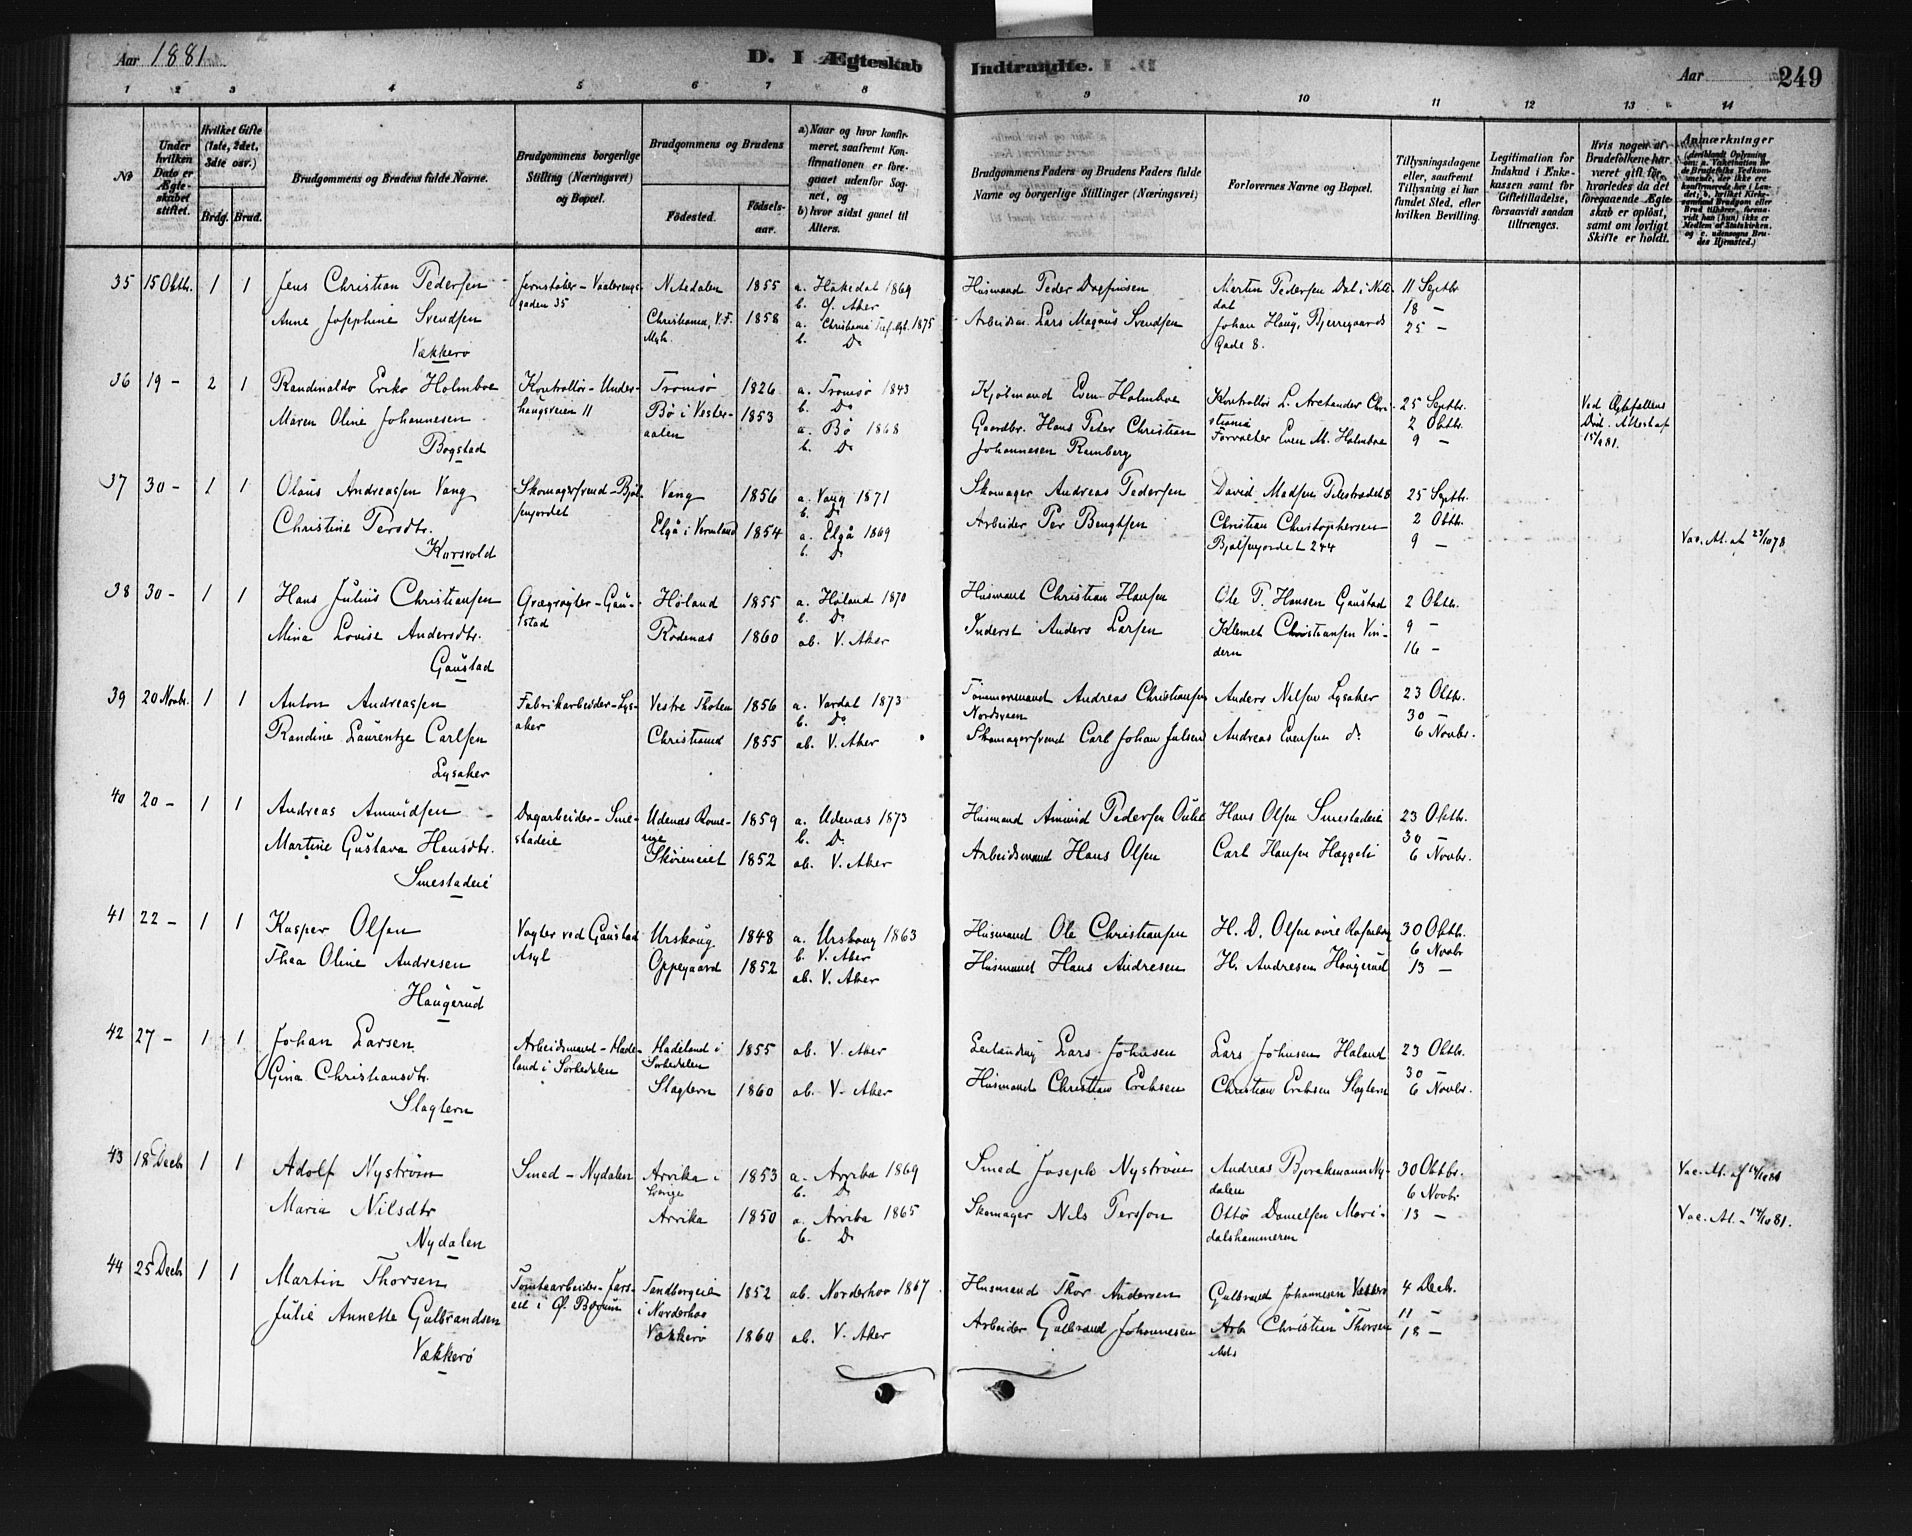 Aar 1881
D. I Ægteskab Indtraadte.
Aar 249
1 2 3 4 5 6 7 8 9 10 11 12 13 14
No
Under hvilken Dato er Ægteskabet stiftet.
Hvilket Gifte (1ste, 2det, 3die osv.)
Brdg. Brud.
Brudgommens og Brudens fulde Navne.
Brudgommens borgerlige Stilling (Næringsvei) og Bopæl.
Brudgommens og Brudens
Fødested. Fødselsaar.
a) Naar og hvor konfirmeret, saafremt Konfirmationen er foregaaet udenfor Sognet, og
b) hvor sidst gaaet til Alters.
Brudgommens Faders og Brudens Faders fulde Navne og borgerlige Stillinger (Næringsvei)
Forlovernes Navne og Bopæl.
Tillysningsdagene eller, saafremt Tillysning ei har fundet Sted, efter hvilken Bevilling.
Legitimation for Indskud i Enkekassen samt for Giftetilladelse, forsaavidt saadan tiltrænges.
Hvis nogen af Brudefolkene har været gift før, hvorledes da det foregaaende Ægteskab er opløst, samt om lovligt Skifte er holdt.
Anmærkninger
35 15 Oktbr. 1 1 Jens Christian Pedersen
Jernstøber - Vaalerengsgaden 35
Nitedalen 1855 a. Hakedal 1869
b. Ø. Aker
Husmand Peder Dagfinsen
Martin Pedersen Dal i Nitedal
11 Septbr
18 -
25 -
Anne Josephine Svendsen
Christiania, V. F. Mgh. 1858 a. Christiania 1875
b. Do
Arbeidsm. Lars Magnus Svendsen
Johan Haug, Bjerregaards Gade 8.
Vækkerø
36 19 - 2 1 Randinaldo Eriko Holmboe
Kontrollør - Underhaugsveien 11
Tromsø 1826 a. Tromsø 1843
b. Do
Kjøbmand Even Holmboe
Kontrollør L. Arctander Christiania
25 Septbr.
2 Oktbr.
9 -
Ved Ægtefællens Død. Atteskaf 15/9 81.
Maren Oline Johannesen
Bø i Vesteraalen 1853 a. Bø 1868
b. Do
Gaardbr. Hans Peter Christian Johannesen Ramberg
Forvalter Even M. Holmboe
Bogstad
37 30 - 1 1 Olaus Andreassen Vang
Skomagersvend - Bjølsenjordet
Vang 1856 a. Vang 1871
b. Do
Skomager Andreas Pedersen
David Madsen Pilestrædet 8
25 Septbr.
2 Oktbr.
9 -
Christine Persdtr.
Elgå i Vermland 1854 a. Elgå 1869
b. Do
Arbeider Per Bengtsen
Christian Christophersen Bjølsenjordet 244
Vac. At. af 23/10 78
Korsvold
38 30 - 1 1 Hans Julius Christiansen
Grøgrøgter - Gaustad
Høland 1855 a. Høland 1870
b. Do
Husmand Christian Hansen
Ole P. Hansen Gaustad
2 Oktbr.
9 -
16 -
Mina Lovise Andersdtr.
Rødenæs 1860 ab. V. Aker
Inderst Anders Larsen
Klemet Christiansen Vindern
Gaustad
39 20 Novbr. 1 1 Anton Andreassen
Fabrikarbeider - Lysaker
Vestre Thoten 1856 a. Vardal 1873
b. Do
Tømmermand Andreas Christiansen Nordsveen
Anders Nilsen Lysaker
23 Oktbr.
30 -
6 Novbr.
Randine Laurentze Carlsen
Christiania 1855 ab. V. Aker
Skomagersvend Carl Johan Julsen
Andreas Evensen do
Lysaker
40 20 - 1 1 Andreas Amundsen
Dagarbeider - Smestadeie
Udenæs Romerige 1859 a. Udenæs 1873
b. Do
Husmand Amund Pedersen
Hans Olsen Smestadeie
23 Oktbr.
30 -
6 Novbr.
Martine Gustava Hansdtr.
Skøreneiet 1852 ab. V. Aker
Arbeidsmand Hans Olsen
Carl Hansen Hæggeli
Smestadeie
41 22 - 1 1 Kasper Olsen
Vogter ved Gaustad Asyl
Urskoug 1848 a. Urskoug 1863
b. V. Aker
Husmand Ole Christiansen
H. D. Olsen øvre Rosenborg
30 Oktbr.
6 Novbr
13 -
Thea Oline Andresen
Oppegaard 1852 ab. V. Aker
Husmand Hans Andresen
H. Andresen Haugerud
Haugerud
42 27 - 1 1 Johan Larsen
Arbeidsmand - Hadeland i Sørkedalen
Hadeland i Sørkedalen 1855 ab. V. Aker
Leilænding Lars Johnsen
Lars Johnsen Haland
23 Oktbr.
30 -
6 Novbr.
Gina Christiansdtr.
Slagtern 1860 ab. V. Aker
Husmand Christian Eriksen
Christian Eriksen Slagtern
Slagtern
43 18 Decb 1 1 Adolf Nystrøm
Smed - Nydalen
Arvika i Sverige 1853 a. Arvika 1869
b. Do
Smed Joseph Nystrøm
Andreas Bjørckmann Nydalen
30 Oktbr.
6 Novbr
13 -
Vac. At. af
Maria Nilsdtr
Arvika 1850 a. Arvika 1865
b. Do
Skomager Nils Persson
Otto Danielsen Maridalshammeren
Vac. At. - 14/10 81.
Nydalen
44 25 Decb 1 1 Martin Thorsen
Tomtearbeider - i Ø. Bærum
Tandbergeie i Norderhov 1852 ab. Norderhov 1867
Husmand Thor Andersen
Gulbrand Johannesen Vækkerø
4 Decb.
11 -
18 -
Julie Annette Gulbrandsen
Vækkerø 1860 ab. V. Aker
Arbeider Gulbrand Johannesen
Arb. Christian Thorsen
Vækkerø